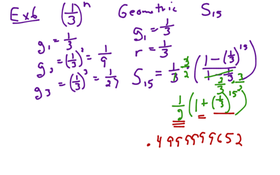 Ex 6 (1/3)^n Geometric S_15
g_1 = 1/3
g_2 = (1/3)^2 = 1/9
g_3 = (1/3)^3 = 1/27
g_1 = 1/3
r = 1/3
S_15 = 1/3 · 3/2 (1 - (1/3)^15 / 1 - 1/3)
2/3 3/2
1/2 (1 + (1/3)^15)
.4999999652